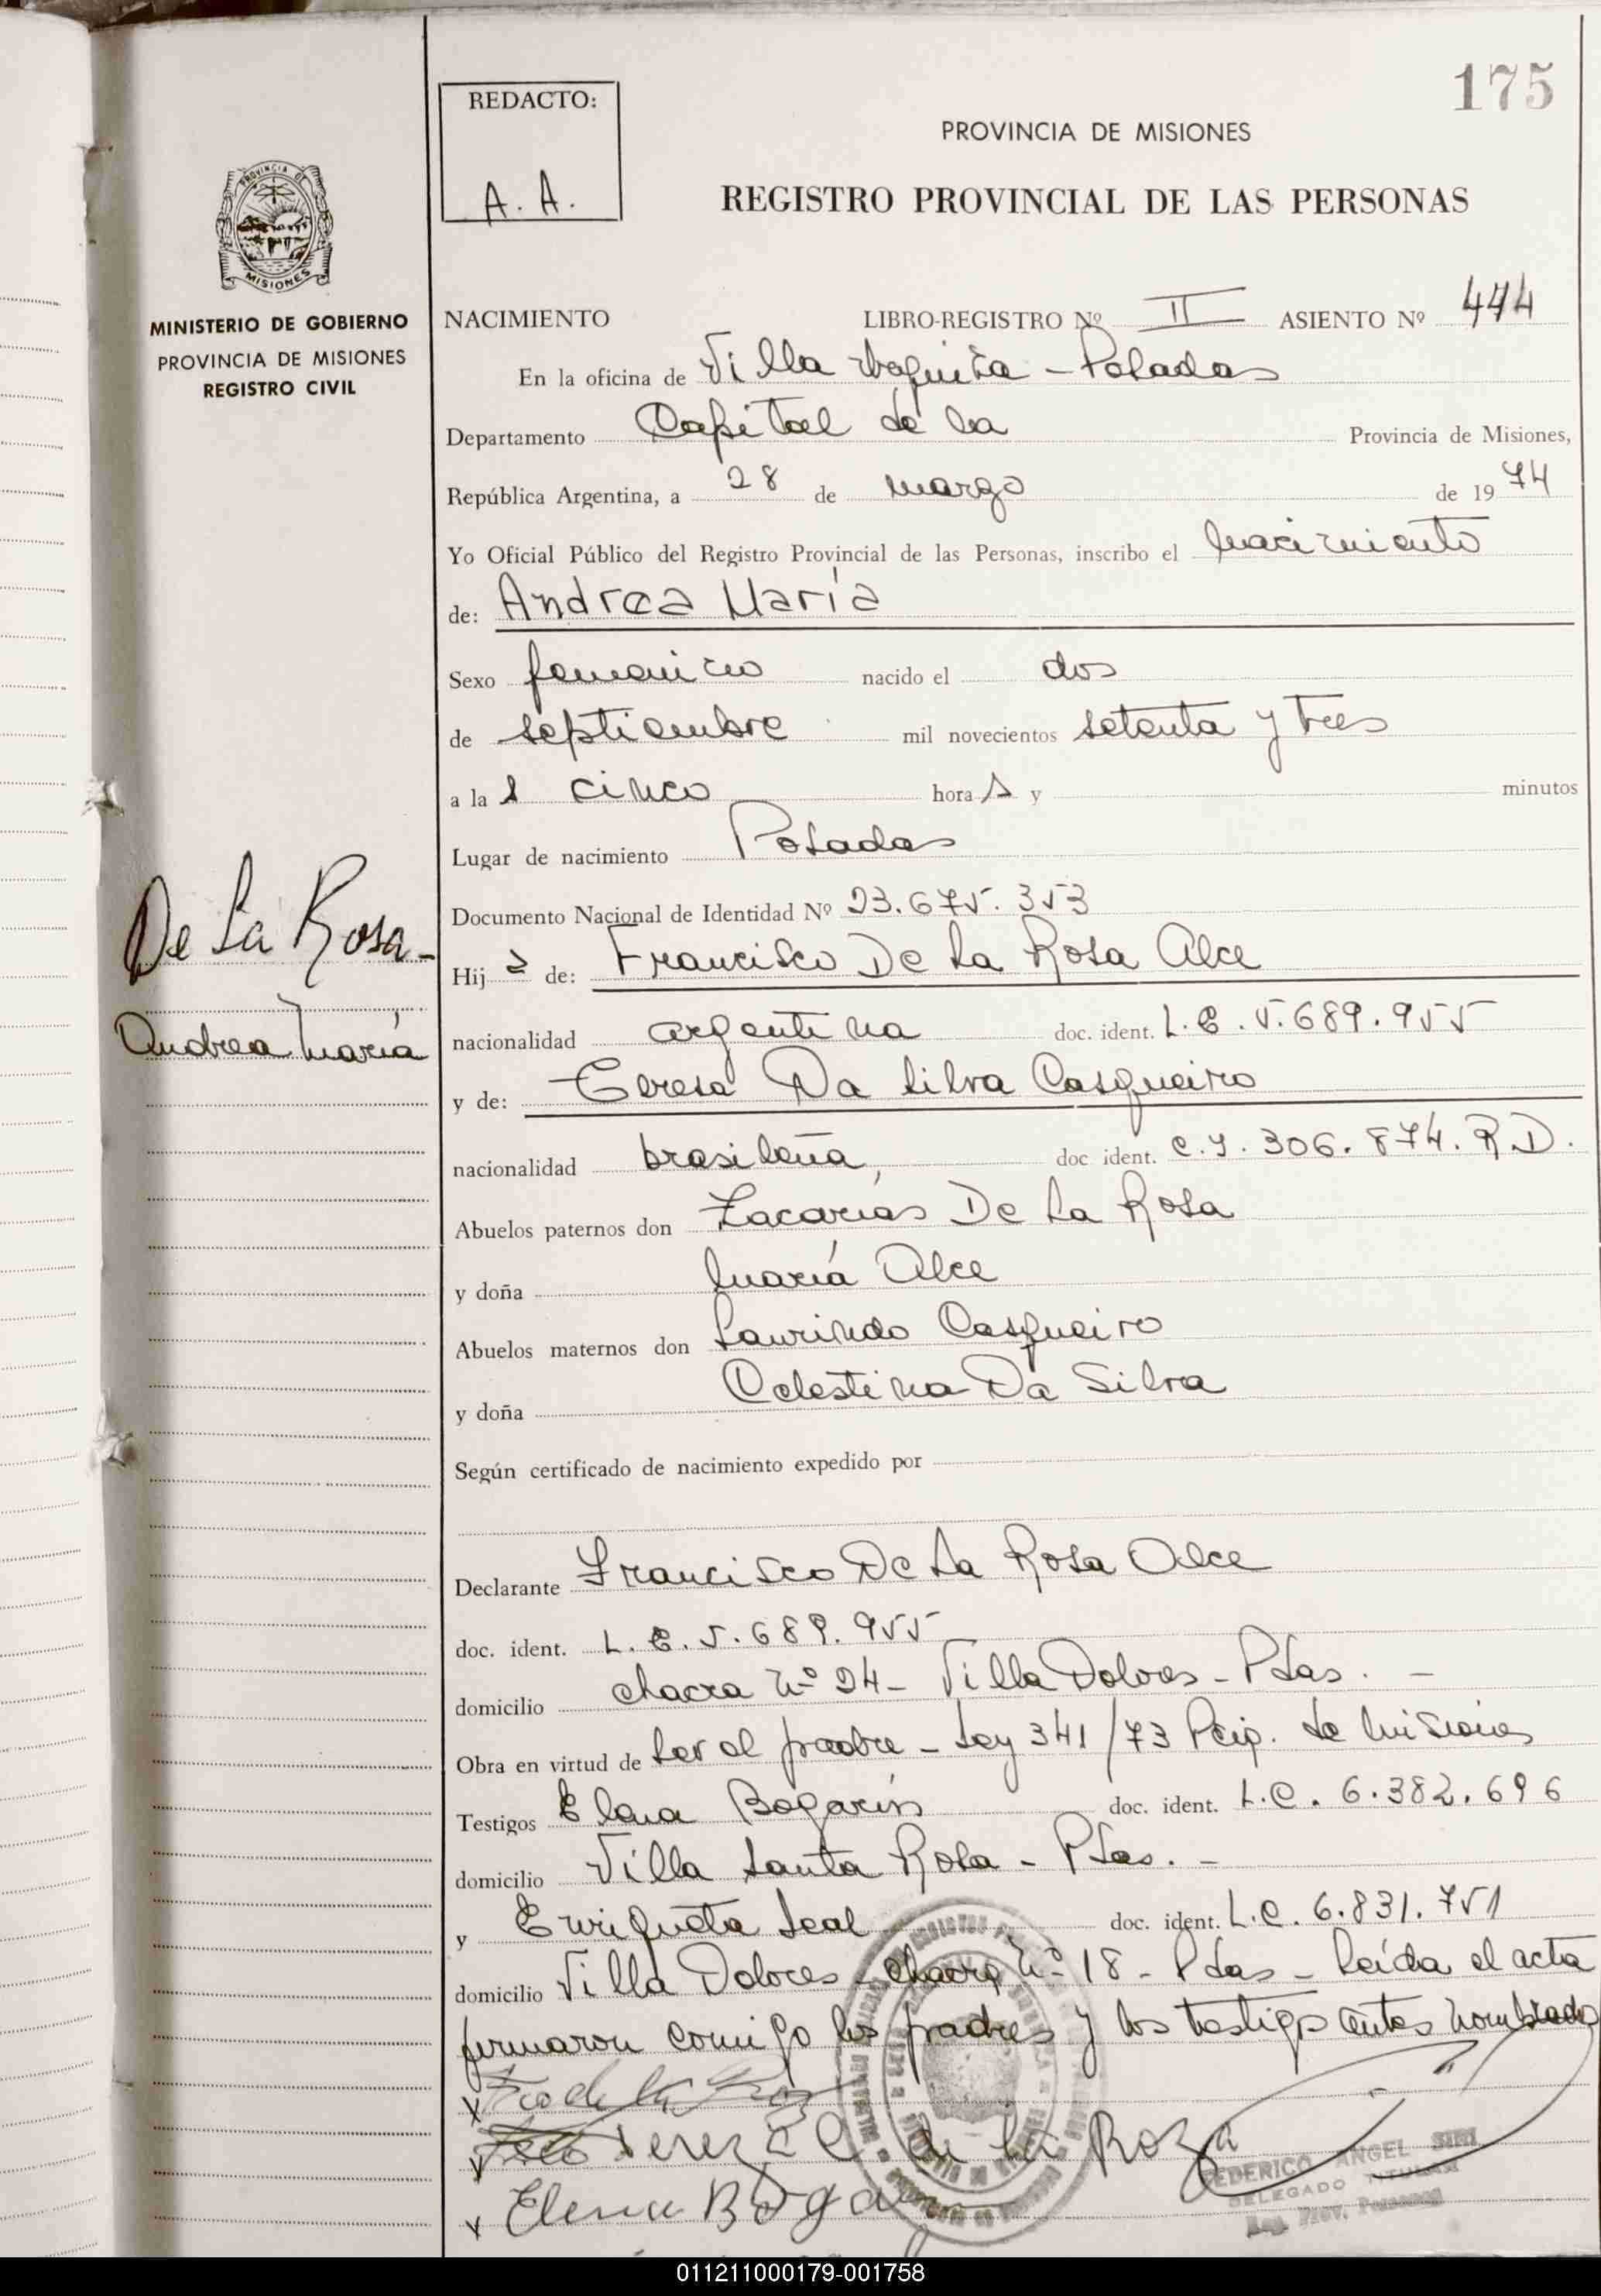 175
REDACTO:
A. A.
PROVINCIA DE MISIONES
REGISTRO PROVINCIAL DE LAS PERSONAS
PROVINCIA DE
MISIONES
MINISTERIO DE GOBIERNO
PROVINCIA DE MISIONES
REGISTRO CIVIL
NACIMIENTO LIBRO-REGISTRO Nº II ASIENTO Nº 474
En la oficina de Villa - Posadas
Departamento Capital de la Provincia de Misiones,
República Argentina, a 28 de marzo de 1974
Yo Oficial Público del Registro Provincial de las Personas, inscribo el nacimiento
de: Andrea María
Sexo femenino nacido el dos
de septiembre mil novecientos setenta y tres
a la s cinco hora s y minutos
Lugar de nacimiento Posadas
Documento Nacional de Identidad Nº 23.675.353
De La Rosa-
Andrea María
Hij a de: Francisco De La Rosa Alce
nacionalidad argentina doc. ident. L.E. 5.689.955
y de: Teresa Da Silva Casqueiro
nacionalidad brasileña, doc ident. C.I. 306.874. R.D.
Abuelos paternos don Zacarías De La Rosa
y doña María Alce
Abuelos maternos don Laurindo Casqueiro
y doña Celestina Da Silva
Según certificado de nacimiento expedido por
Declarante Francisco De La Rosa Alce
doc. ident. L.E. 5.689.955
domicilio chacra Nº 24- Villa Dolores - Pdas. -
Obra en virtud de ser el padre - Ley 341/73 Pcip. de Misiones
Testigos Elena Bogarín doc. ident. L.C. 6.382.696
domicilio Villa Santa Rosa - Pdas. -
y Enriqueta Leal doc. ident. L.C. 6.831.751
domicilio Villa Dolores - chacra Nº 18 - Pdas - Leída el acta
firmaron conmigo los padres y los testigos antes nombrado
x Fco de la
x Terez de la Roza
FEDERICO ANGEL SIRI
DELEGADO TITULAR
Reg. Prov. Personas
x Elena Boga
011211000179-001758